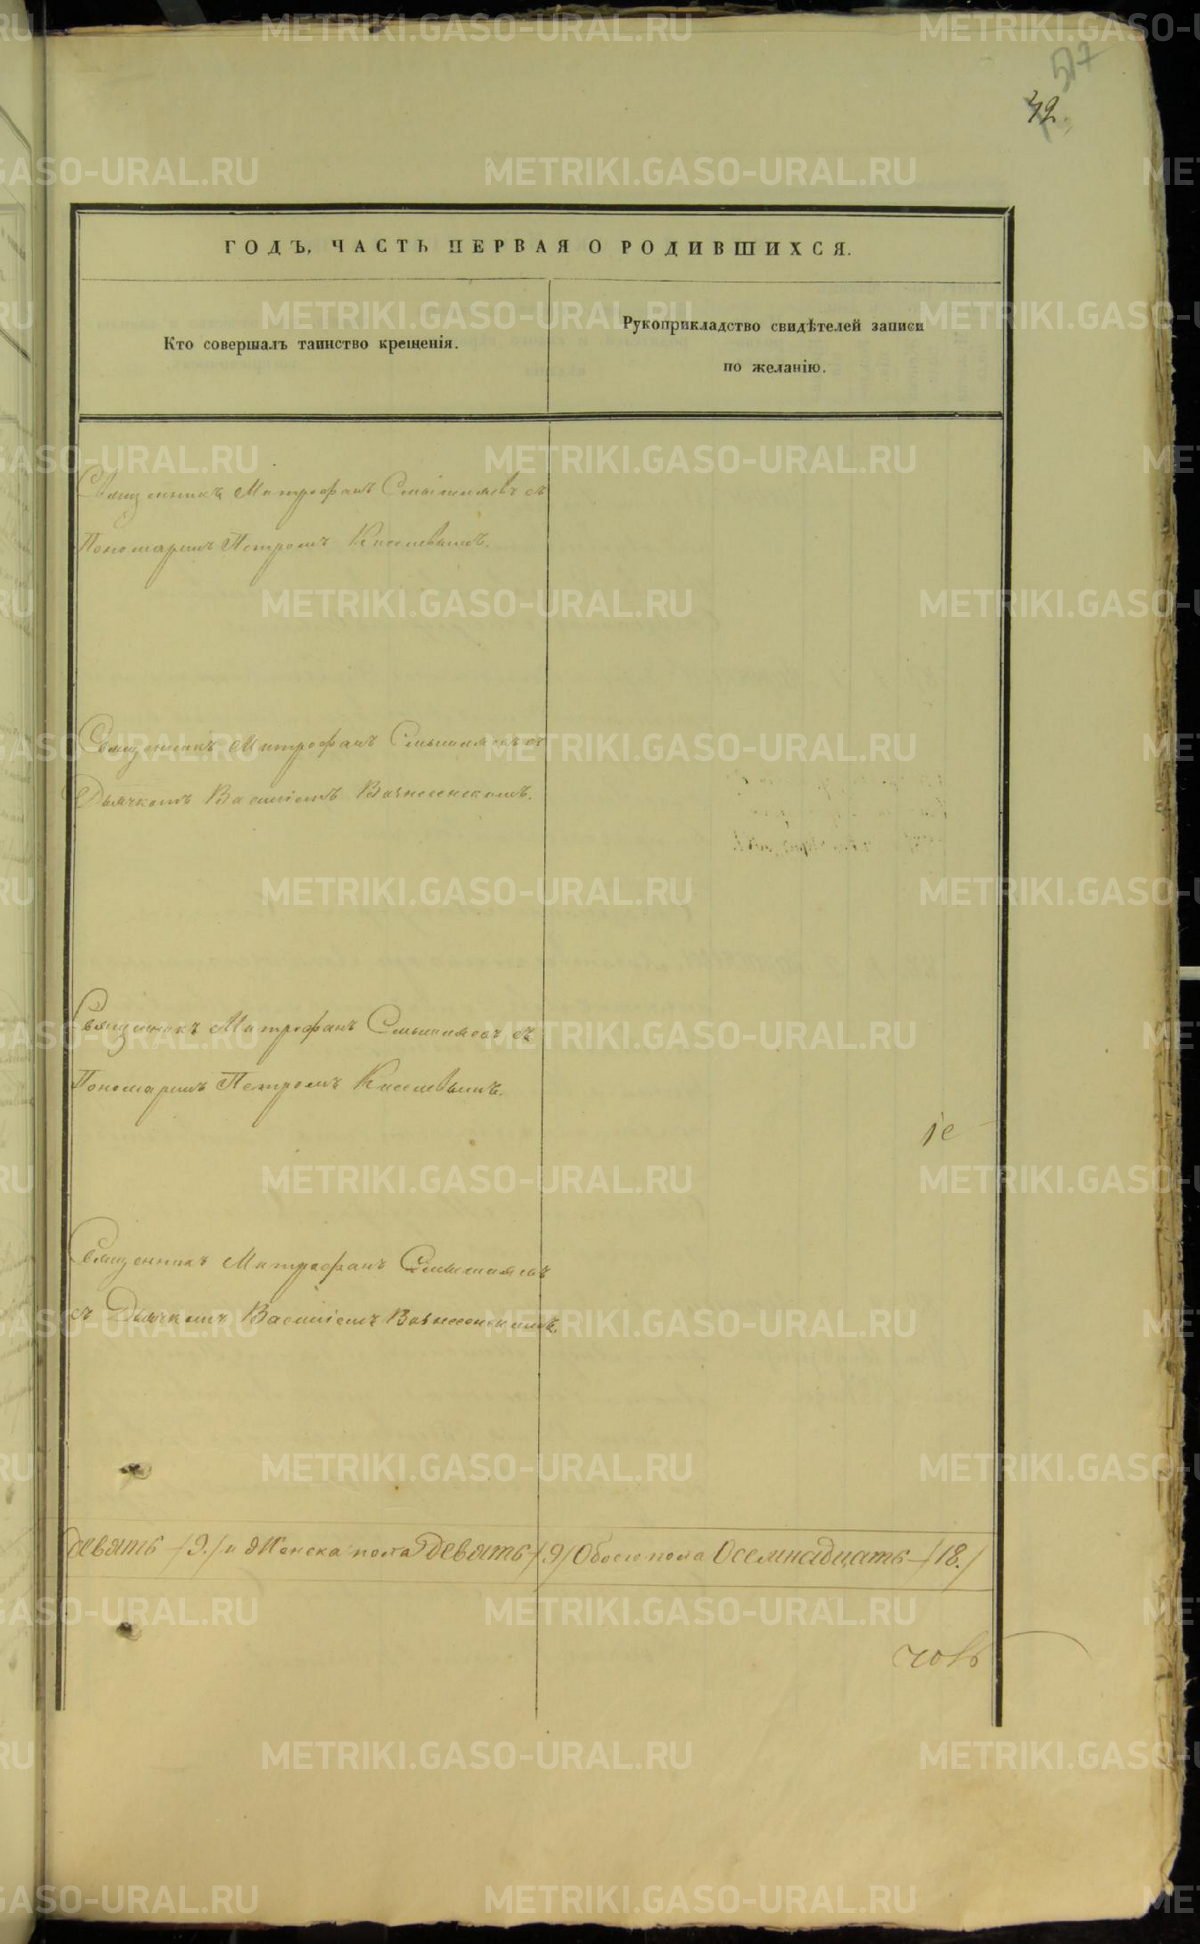 517
42.
ГОДЪ, ЧАСТЬ ПЕРВАЯ О РОДИВШИХСЯ.
Кто совершалъ таинство крещенія.
Рукоприкладство свидѣтелей записи
по желанію.
Священникъ Митрофанъ Смышляевъ съ
Пономаремъ Петромъ Киселевымъ.
Священникъ Митрофанъ Смышляевъ съ
Дьячкомъ Василіемъ Вознесенскимъ.
Священникъ Митрофанъ Смышляевъ съ
Пономаремъ Петромъ Киселевымъ.
Священникъ Митрофанъ Смышляевъ
съ Дьячкомъ Василіемъ Вознесенскимъ.
девять /9./ и Женска пола девять /9/ Обоего пола Осемнадцать /18./
METRIKI.GASO-URAL.RU